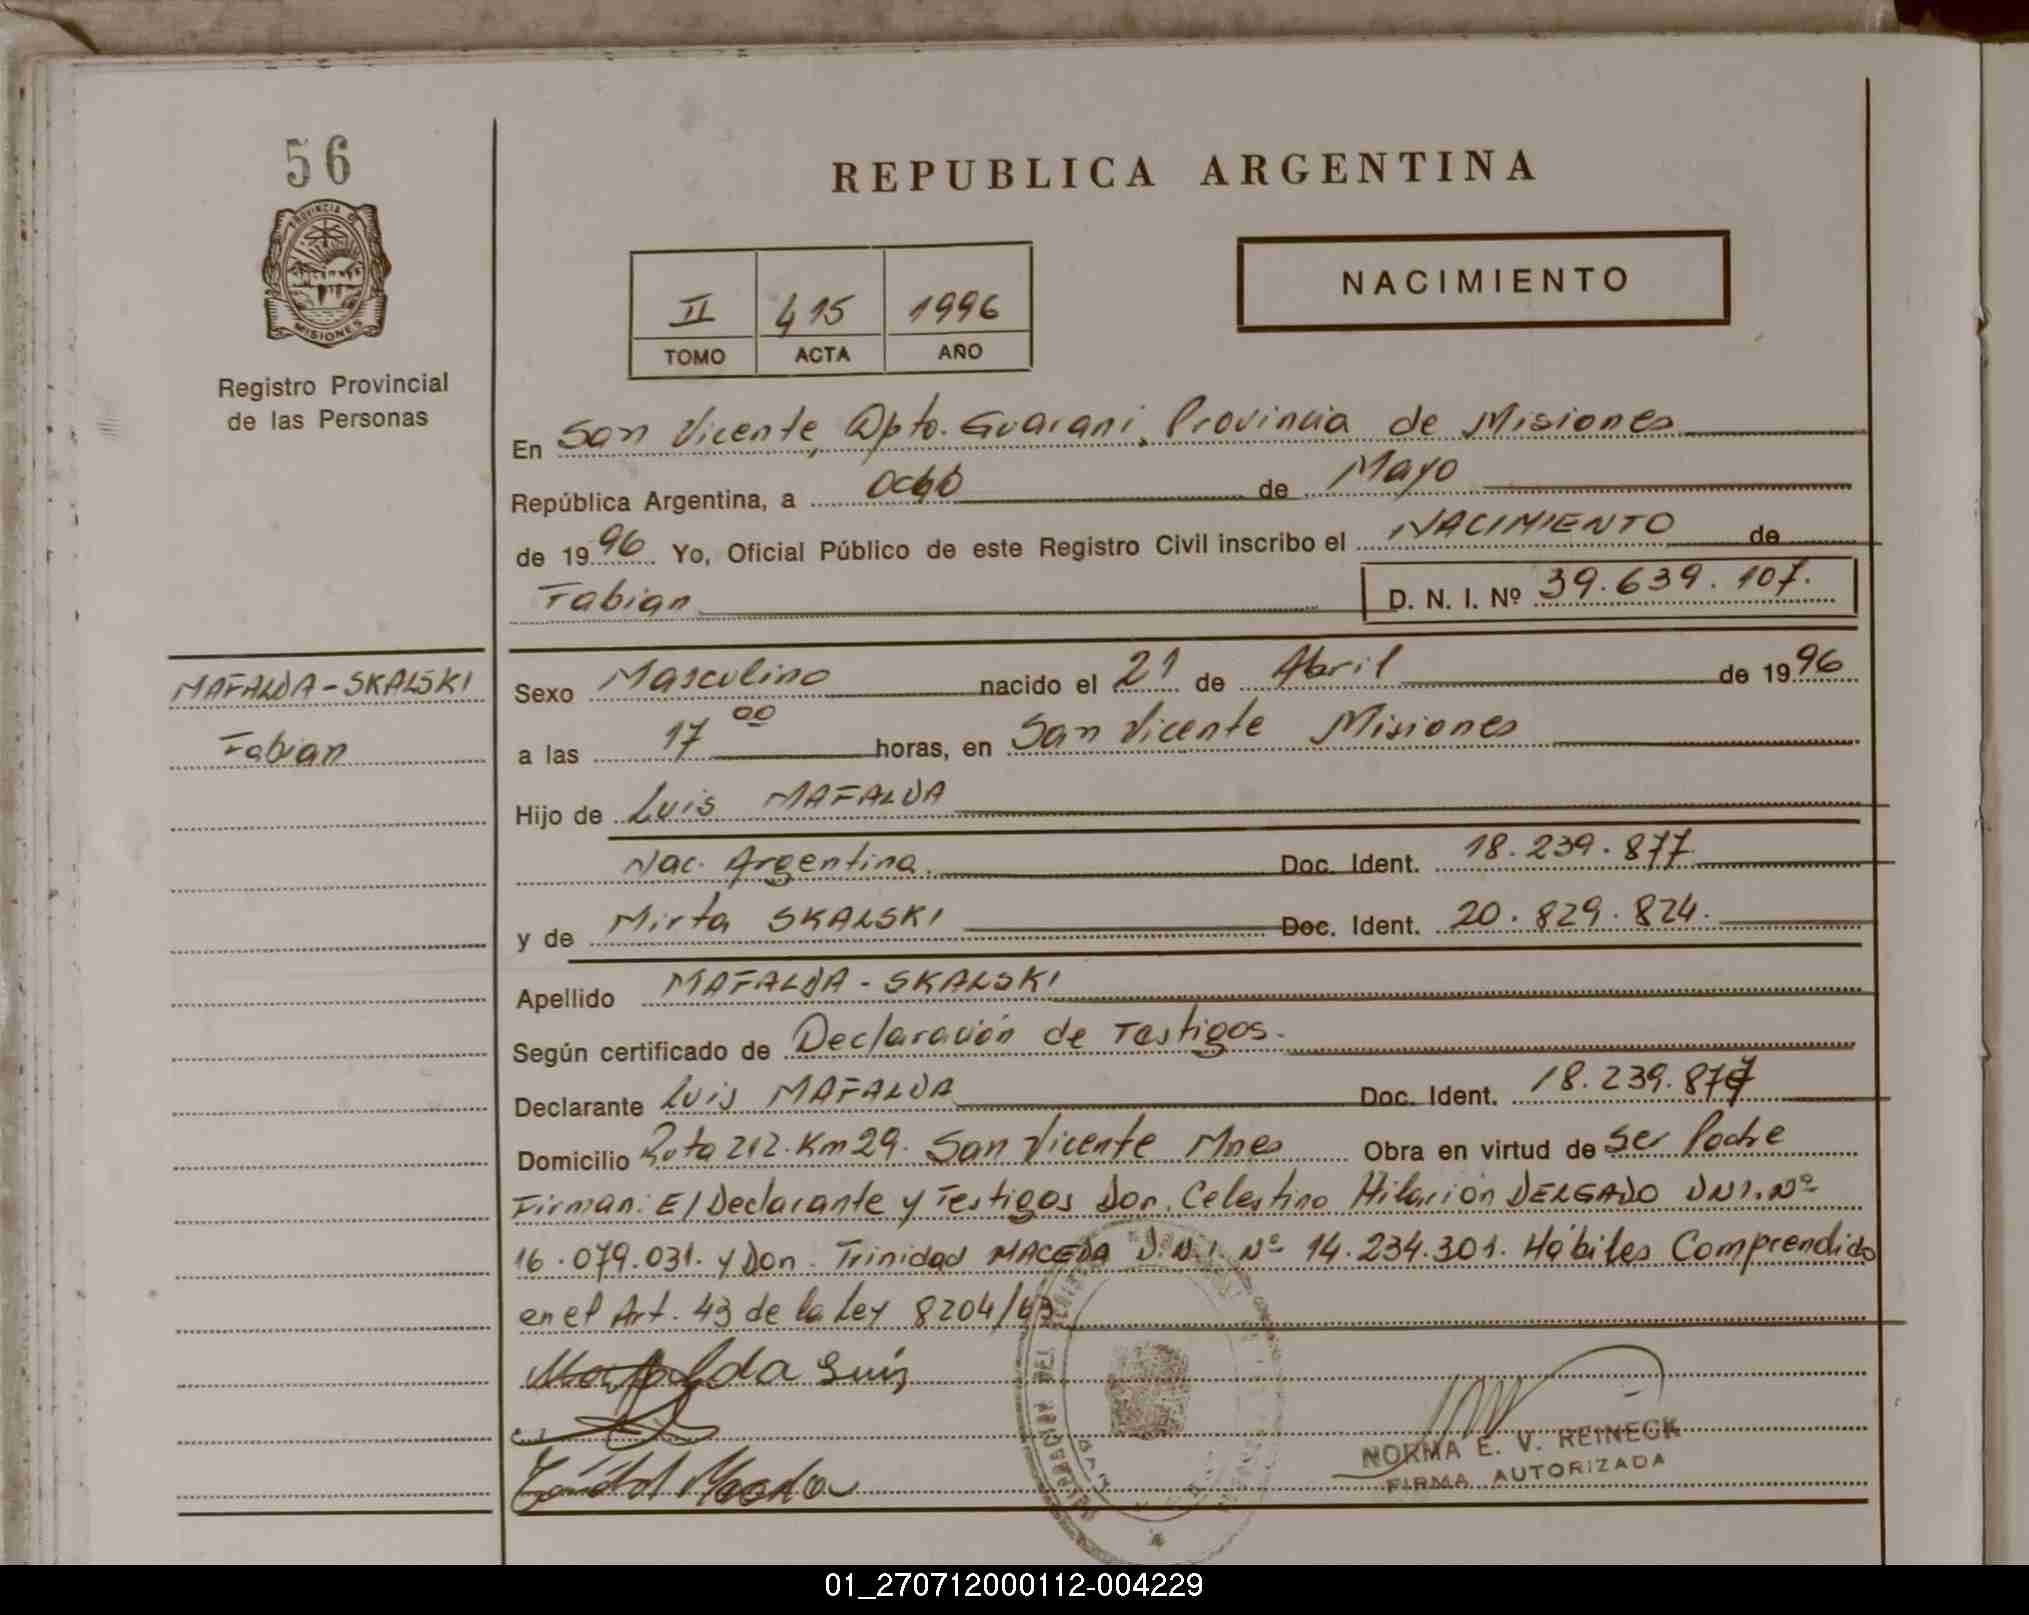 56
PROVINCIA DE
MISIONES
Registro Provincial
de las Personas
REPUBLICA ARGENTINA
NACIMIENTO
II 415 1996
TOMO ACTA AÑO
En San Vicente, Dpto. Guarani, Provincia de Misiones
República Argentina, a ocho de Mayo
de 1996 Yo, Oficial Público de este Registro Civil inscribo el NACIMIENTO de
Fabian D. N. I. Nº 39.639.107.
MAFALDA-SKALSKI
Fabian
Sexo Masculino nacido el 21 de Abril de 1996
a las 17 00 horas, en San Vicente Misiones
Hijo de Luis MAFALDA
Nac. Argentina. Doc. Ident. 18.239.877
y de Mirta SKALSKI Doc. Ident. 20.829.824.
Apellido MAFALDA - SKALSKI
Según certificado de Declaración de Testigos.
Declarante Luis MAFALDA Doc. Ident. 18.239.877
Domicilio Ruta 212. Km 29. San Vicente Mnes Obra en virtud de Ser Padre
Firman: El Declarante y Testigos Don. Celestino Hilarión DELGADO DNI. Nº
16.079.031. y Don. Trinidad MACEDA D.N.I. Nº 14.234.301. Hábiles Comprendido
en el Art. 43 de la Ley 8204/63
Mafalda Luis
NORMA E. V. REINECK
FIRMA AUTORIZADA
01_270712000112-004229